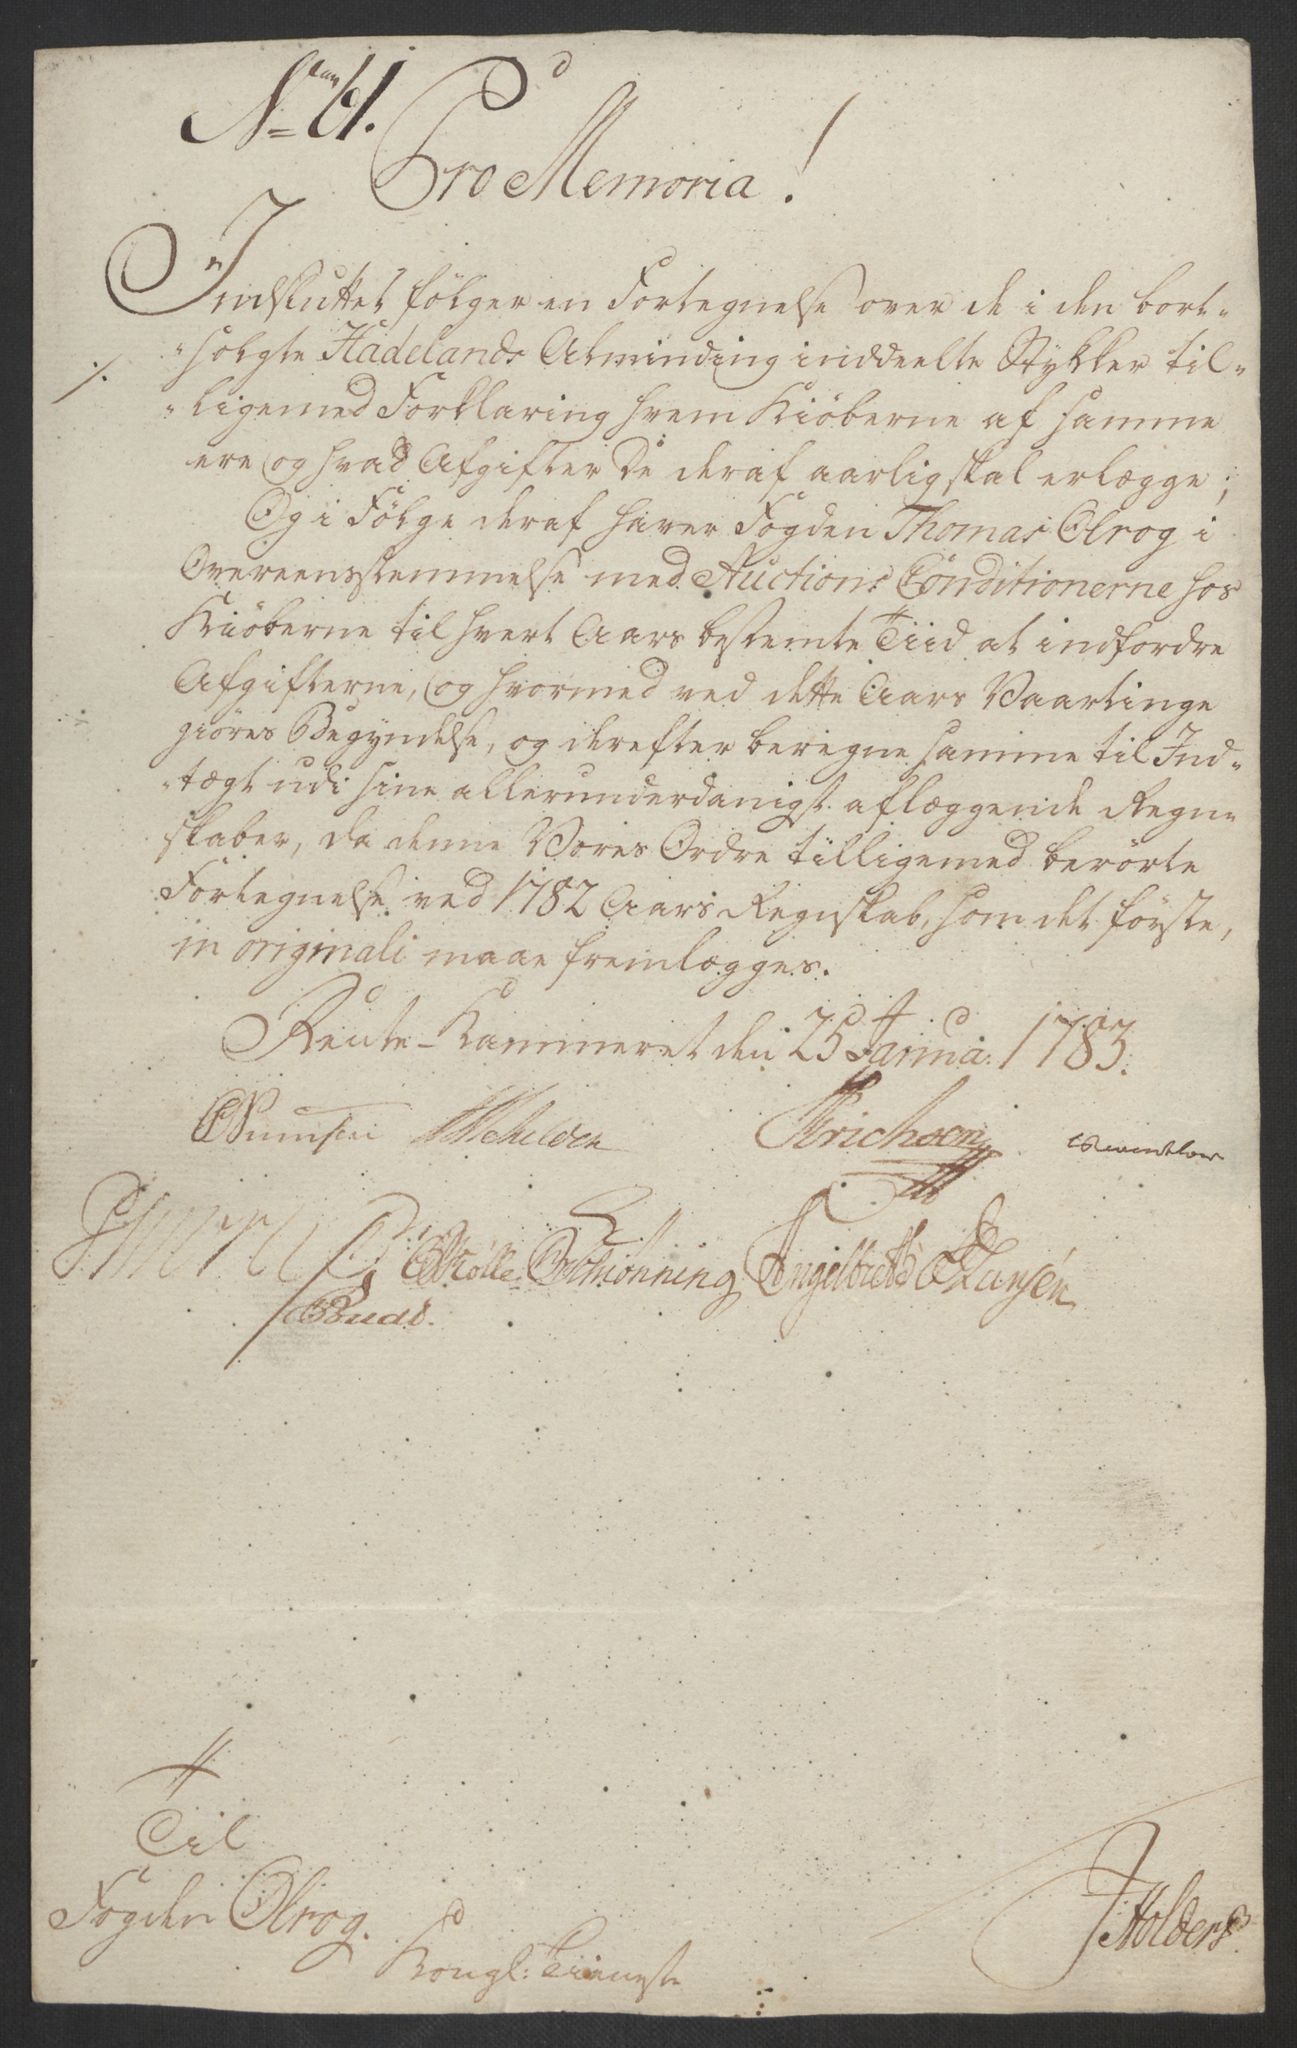 Pro Memoria!
Indsluttet følger en Fortegnelse over de i den bort-
solgte Hadelands Alminding inddeelte Stykker til-
ligemed Forklaring hvem Kiøberne af samme
ere og hvad Afgifter De deraf aarlig skal erlægge;
Og i Følge deraf haver Fogden Thomas Olrog i
Overeensstemmelse med Auctions Conditionerne hos
Kiøberne til hvert Aars bestemte Tiid at indfordre
Afgifterne, og hvormed ved dette Aars Vaartinge
giøres Begyndelse, og derefter beregne samme til Ind-
tægt udi sine allerunderdanigst aflæggende Regn-
skaber, da denne Vores Ordre tilligemed berørte
Fortegnelse ved 1782 Aars Regnskab, som det første,
in originali maae fremlægges.
Rente-Kammeret den 25 Janua: 1783.
Erichsen
Engelbrecht Hansén
Til
Fogden Olrog.
Kongl: Tieneste